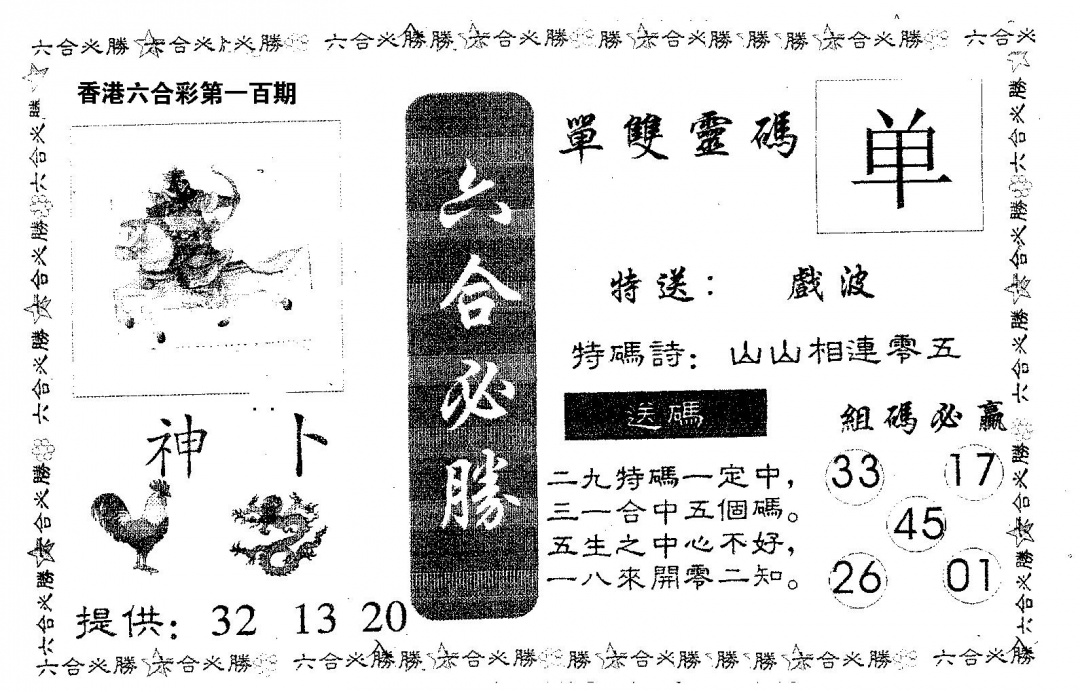 六合必勝 六合必勝 六合必勝 六合必勝 六合必勝 六合必勝
香港六合彩第一百期
神 卜
提供: 32 13 20
六合必勝
單雙靈碼
单
特送: 戲波
特碼詩: 山山相連零五
送碼
二九特碼一定中，
三一合中五個碼。
五生之中心不好，
一八來開零二知。
組碼必贏
33 17
45
26 01
六合必勝 六合必勝 六合必勝 六合必勝 六合必勝 六合必勝